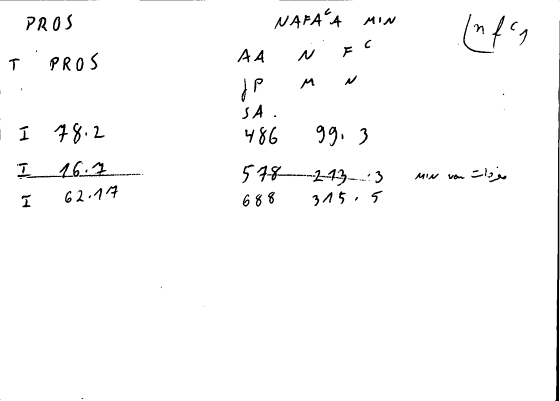 PROS NAFAᶜA MIN
(nfᶜ,
T PROS AA N Fᶜ
JP M N
SA.
I 78.2 486 99.3
I 16.7 578 213.3 MIN van مفردات
I 62.17 688 315.5